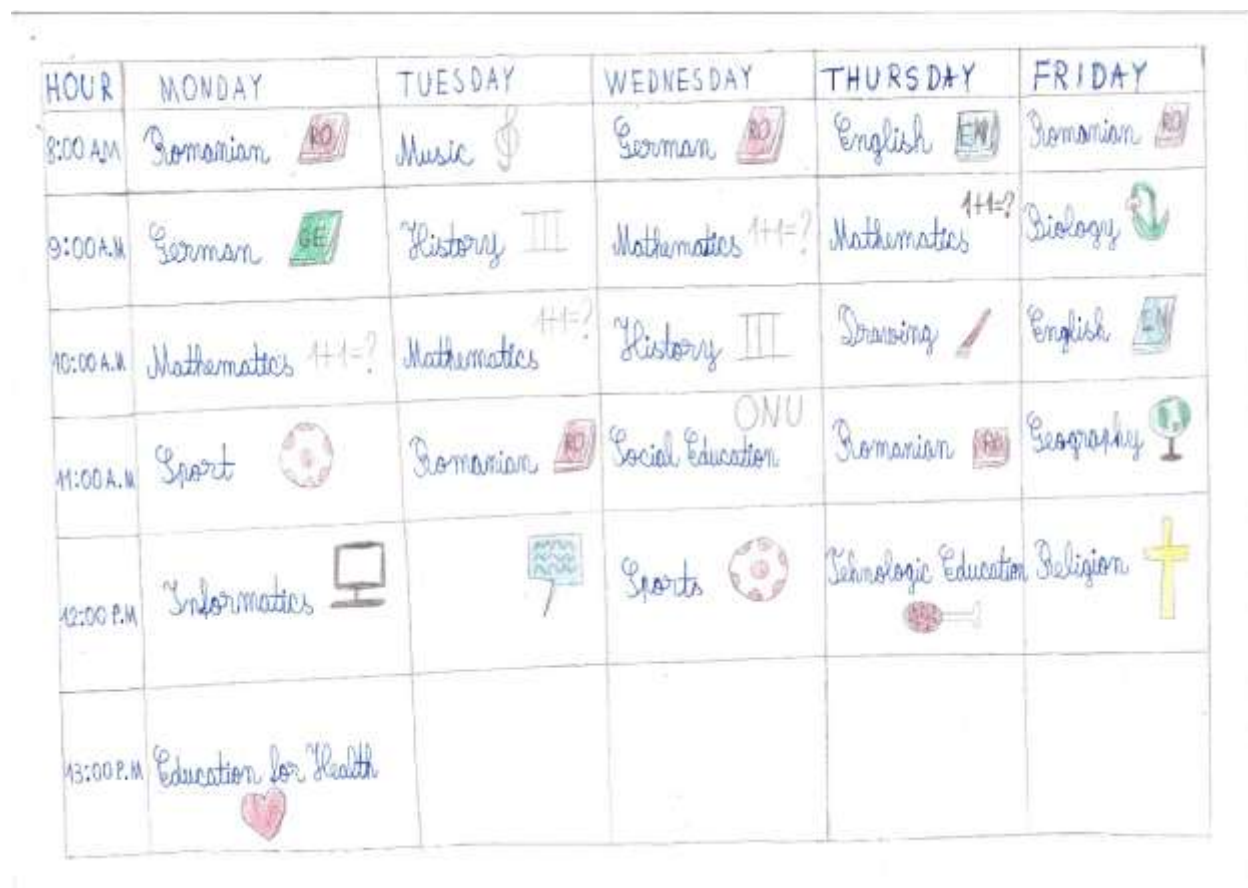 HOUR MONDAY TUESDAY WEDNESDAY THURSDAY FRIDAY
8:00 AM Romanian RO Music German RO English EN Romanian RO
9:00 A.M German GE History III Mathematics 1+1=? Mathematics 1+1=? Biology
10:00 A.M Mathematics 1+1=? Mathematics 1+1=? History III Drawing English EN
11:00 A.M Sport Romanian RO Social Education ONU Romanian RO Geography
12:00 P.M Informatics Sports Tehnologic Education Religion
13:00 P.M Education for Health